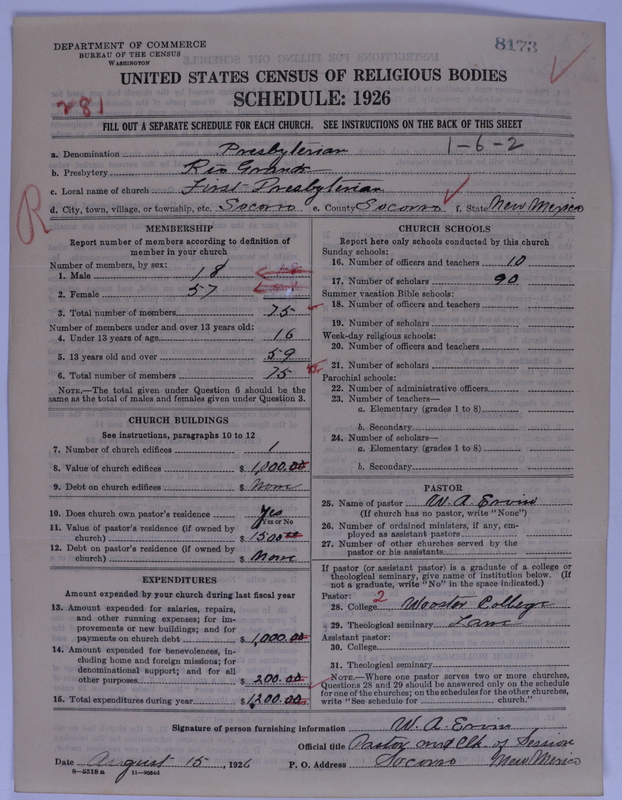 DEPARTMENT OF COMMERCE
BUREAU OF THE CENSUS
WASHINGTON
8173
UNITED STATES CENSUS OF RELIGIOUS BODIES
SCHEDULE: 1926
281
FILL OUT A SEPARATE SCHEDULE FOR EACH CHURCH. SEE INSTRUCTIONS ON THE BACK OF THIS SHEET
1-6-2
a. Denomination Presbyterian
b. Presbytery Rio Grande
c. Local name of church First Presbyterian
d. City, town, village, or township, etc. Socorro e. County Socorro f. State New Mexico
R
MEMBERSHIP
Report number of members according to definition of member in your church
Number of members, by sex:
1. Male 18
2. Female 57
3. Total number of members 75
Number of members under and over 13 years old:
4. Under 13 years of age 16
5. 13 years old and over 59
6. Total number of members 75
NOTE.—The total given under Question 6 should be the
same as the total of males and females given under Question 3.
CHURCH BUILDINGS
See instructions, paragraphs 10 to 12
7. Number of church edifices 1
8. Value of church edifices $ 1,000.00
9. Debt on church edifices $ None
10. Does church own pastor's residence Yes
Yes or No
11. Value of pastor's residence (if owned by
church) $ 1500.00
12. Debt on pastor's residence (if owned by
church) $ None
EXPENDITURES
Amount expended by your church during last fiscal year
13. Amount expended for salaries, repairs,
and other running expenses; for im-
provements or new buildings; and for
payments on church debt $ 1,000.00
14. Amount expended for benevolences, in-
cluding home and foreign missions; for
denominational support; and for all
other purposes $ 200.00
15. Total expenditures during year $ 1,200.00
CHURCH SCHOOLS
Report here only schools conducted by this church
Sunday schools:
16. Number of officers and teachers 10
17. Number of scholars 90
Summer vacation Bible schools:
18. Number of officers and teachers
19. Number of scholars
Week-day religious schools:
20. Number of officers and teachers
21. Number of scholars
Parochial schools:
22. Number of administrative officers
23. Number of teachers—
a. Elementary (grades 1 to 8)
b. Secondary
24. Number of scholars—
a. Elementary (grades 1 to 8)
b. Secondary
PASTOR
25. Name of pastor W. A. Ervin
(If church has no pastor, write "None")
26. Number of ordained ministers, if any, em-
ployed as assistant pastors
27. Number of other churches served by the
pastor or his assistants
If pastor (or assistant pastor) is a graduate of a college or
theological seminary, give name of institution below. (If
not a graduate, write "No" in the space indicated.)
Pastor: 2
28. College Wooster College
29. Theological seminary Lane
Assistant pastor:
30. College
31. Theological seminary
NOTE.—Where one pastor serves two or more churches,
Questions 28 and 29 should be answered only on the schedule
for one of the churches; on the schedules for the other churches,
write "See schedule for church.
Signature of person furnishing information W. A. Ervin
Official title Pastor and Clk. of Session
Date August 15, 1926 P. O. Address Socorro New Mexico
8-5518 a